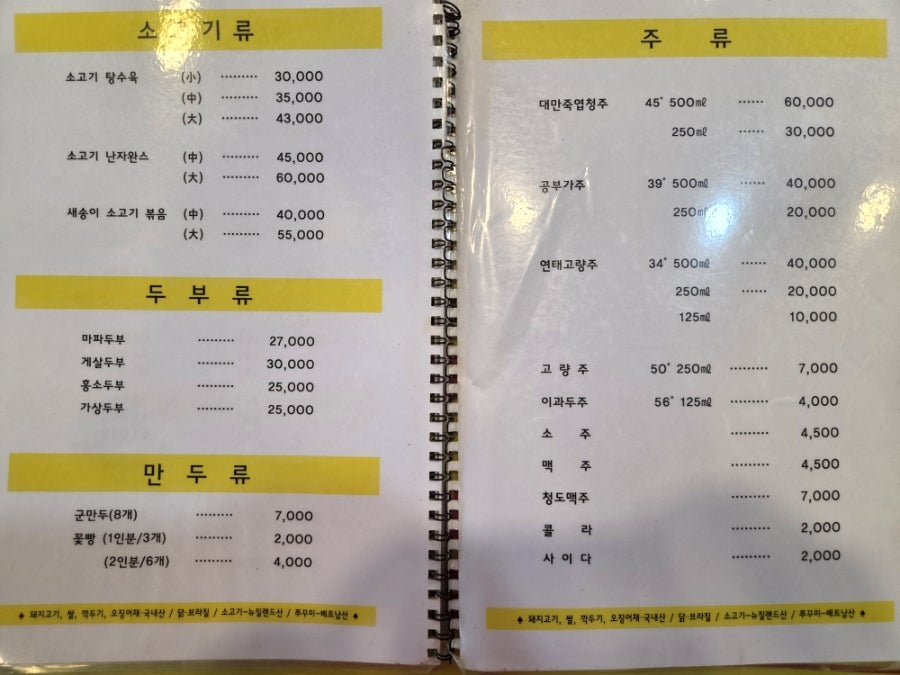 소고기류
소고기 탕수육 (小) ········· 30,000
(中) ········· 35,000
(大) ········· 43,000
소고기 난자완스 (中) ········· 45,000
(大) ········· 60,000
새송이 소고기 볶음 (中) ········· 40,000
(大) ········· 55,000
두 부 류
마파두부 ········· 27,000
게살두부 ········· 30,000
홍소두부 ········· 25,000
가상두부 ········· 25,000
만 두 류
군만두(8개) ········· 7,000
꽃빵 (1인분/3개) ········· 2,000
(2인분/6개) ········· 4,000
♠ 돼지고기, 쌀, 깍두기, 오징어채-국내산 / 닭-브라질 / 소고기-뉴질랜드산 / 쭈꾸미-베트남산 ♠
주 류
대만죽엽청주 45˚ 500㎖ ······ 60,000
250㎖ ······ 30,000
공부가주 39˚ 500㎖ ······ 40,000
250㎖ 20,000
연태고량주 34˚ 500㎖ ······ 40,000
250㎖ ······ 20,000
125㎖ 10,000
고 량 주 50˚ 250㎖ ········· 7,000
이과두주 56˚ 125㎖ ········· 4,000
소 주 ········· 4,500
맥 주 ········· 4,500
청도맥주 ········· 7,000
콜 라 ········· 2,000
사 이 다 ········· 2,000
♠ 돼지고기, 쌀, 깍두기, 오징어채-국내산 / 닭-브라질 / 소고기-뉴질랜드산 / 쭈꾸미-베트남산 ♠